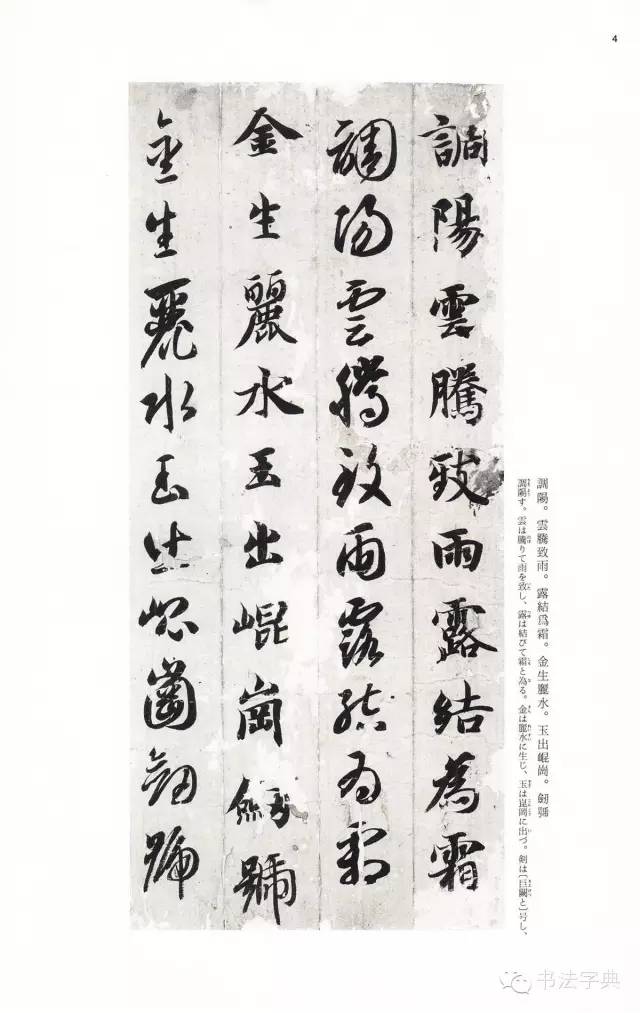 4
調陽雲騰致雨露結為霜
調陽雲騰致雨露結為霜
金生麗水玉出崐崗劒號
金生麗水玉出崐崗劒號
調陽。雲騰致雨。露結爲霜。金生麗水。玉出崐崗。劒號
調陽す。雲は騰りて雨を致し、露は結びて霜と為る。金は麗水に生じ、玉は崑岡に出づ。剣は〔巨闕と〕号し、
书法字典